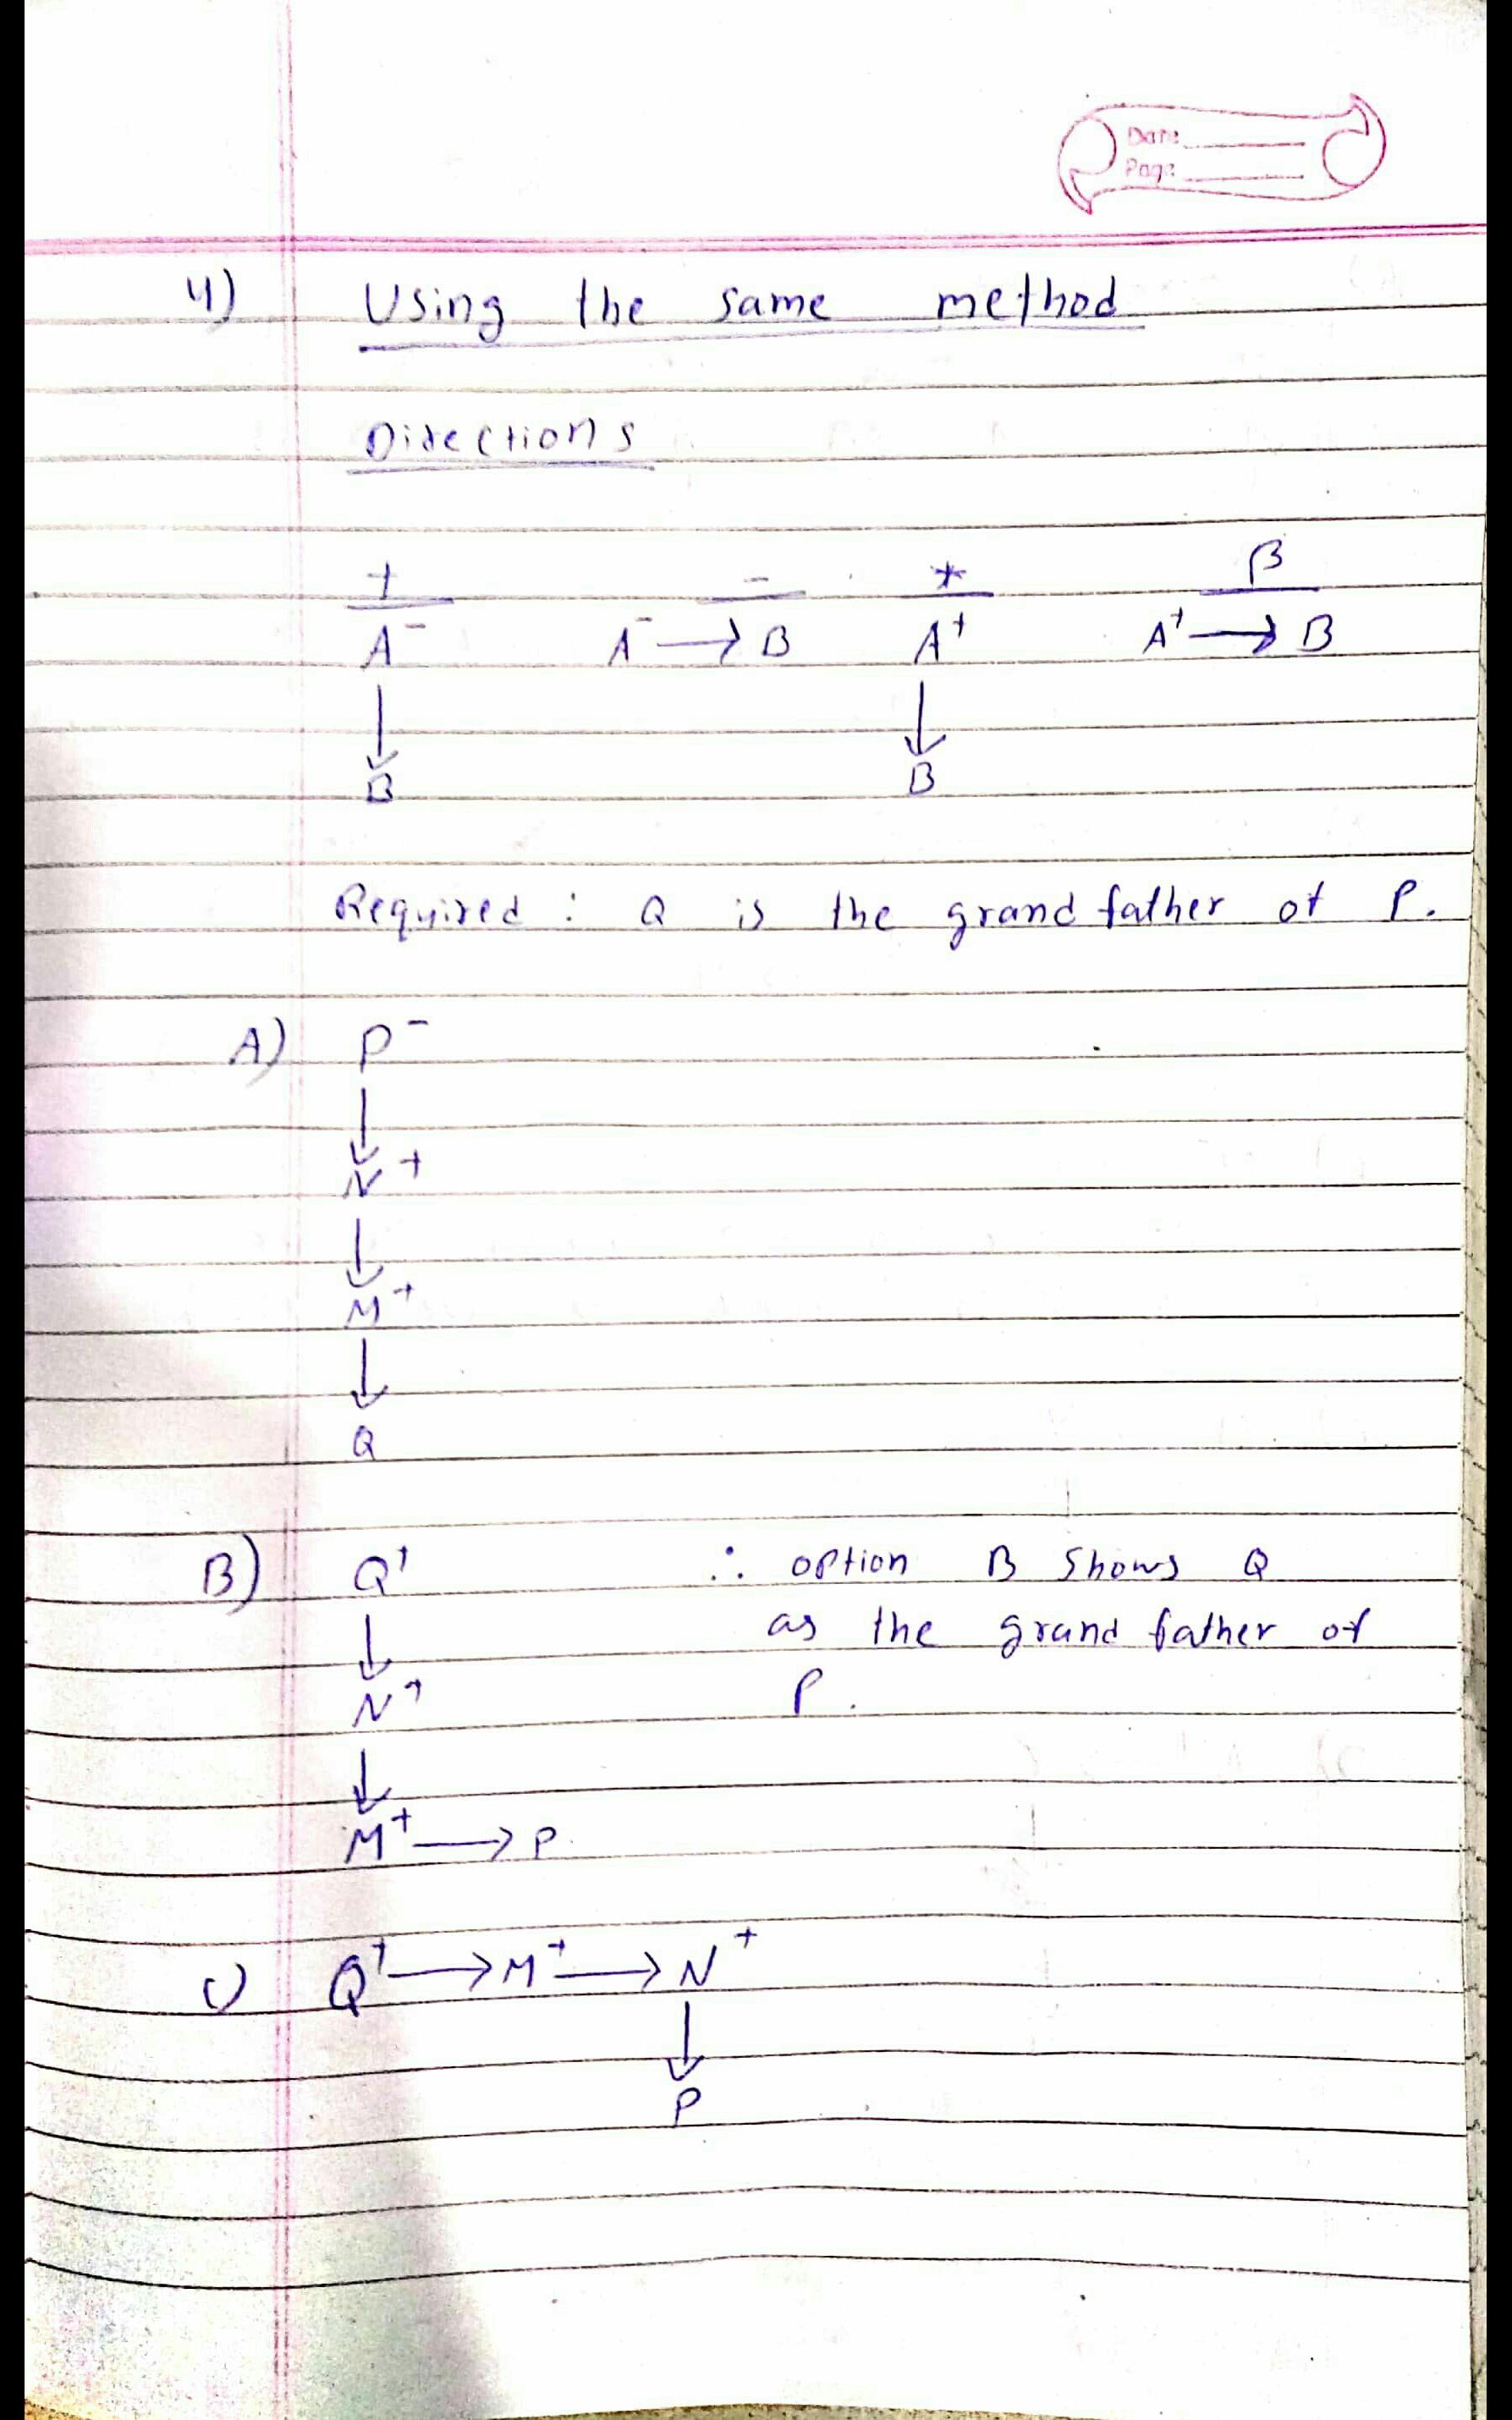 Date
Page
4) Using the same method
Directions
+ - * β
A⁻ A⁻ → B A⁺ A⁺ → B
↓ ↓
B B
Required : Q is the grand father of P.
A) P⁻
↓
N⁺
↓
M⁺
↓
Q
B) Q⁺ ∴ option B shows Q
↓ as the grand father of
N⁺ P.
↓
M⁺ → P
C) Q⁺ → M⁺ → N⁺
↓
P